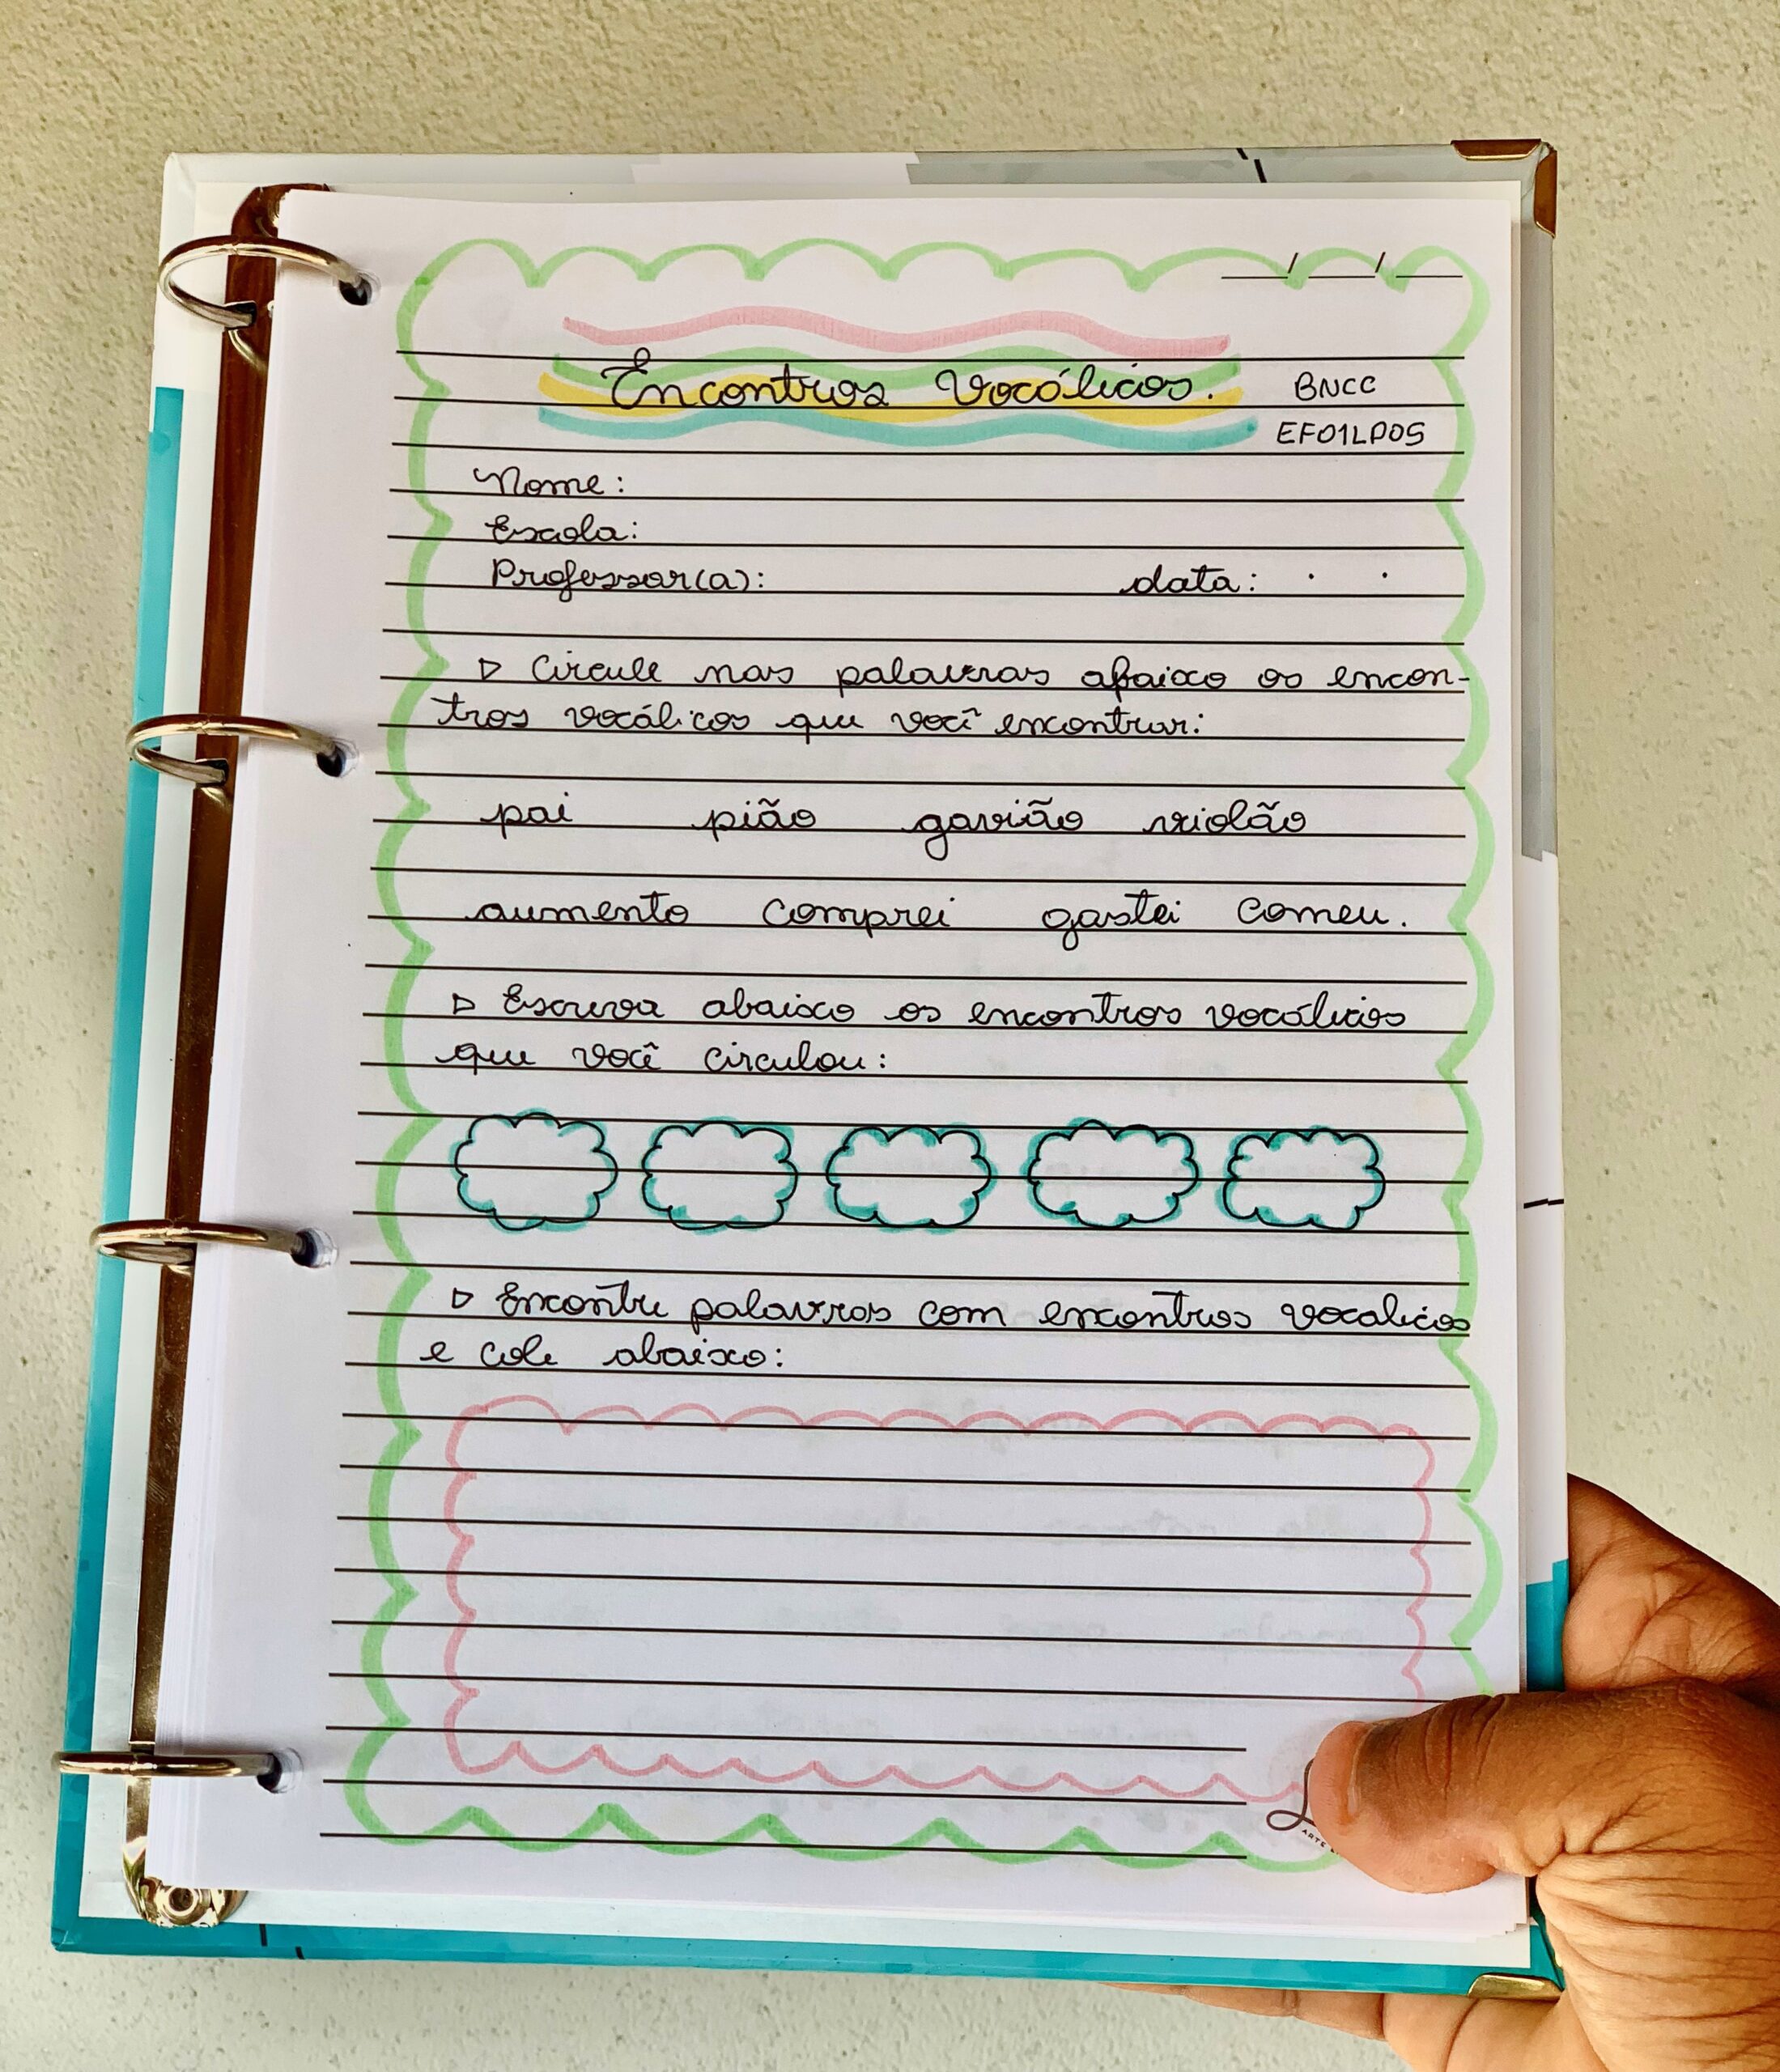 __/__/__
Encontros Vocálicos. BNCC
EF01LP05
Nome:
Escola:
Professor(a): data: . .
▷ Circule nas palavras abaixo os encon-
tros vocálicos que você encontrar:
pai pião gavião violão
aumento comprei gastei comeu.
▷ Escreva abaixo os encontros vocálicos
que você circulou:
▷ Encontre palavras com encontros vocalicos
e cole abaixo:
ARTE